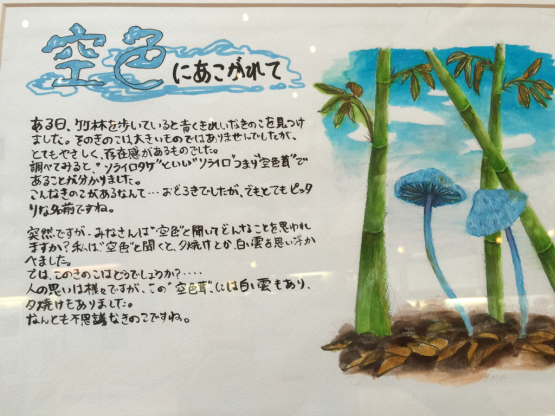 空色にあこがれて
ある日、竹林を歩いていると青くきれいなきのこを見つけ
ました。そのきのこは大きいものではありませんでしたが、
とてもやさしく、存在感があるものでした。
調べてみると、"ソライロタケ"といい"ソライロ"つまり"空色茸"で
あることが分かりました。
こんなきのこがあるなんて…おどろきでしたが、でもとてもピッタ
リな名前ですね。
突然ですが、みなさんは"空色"と聞いてどんなことを思われ
ますか？私は"空色"と聞くと、夕焼けとか、白い雲を思い浮か
べました。
では、このきのこはどうでしょうか？‥‥
人の思いは様々ですが、この"空色茸"には白い雲もあり、
夕焼けもありました。
なんとも不思議なきのこですね。